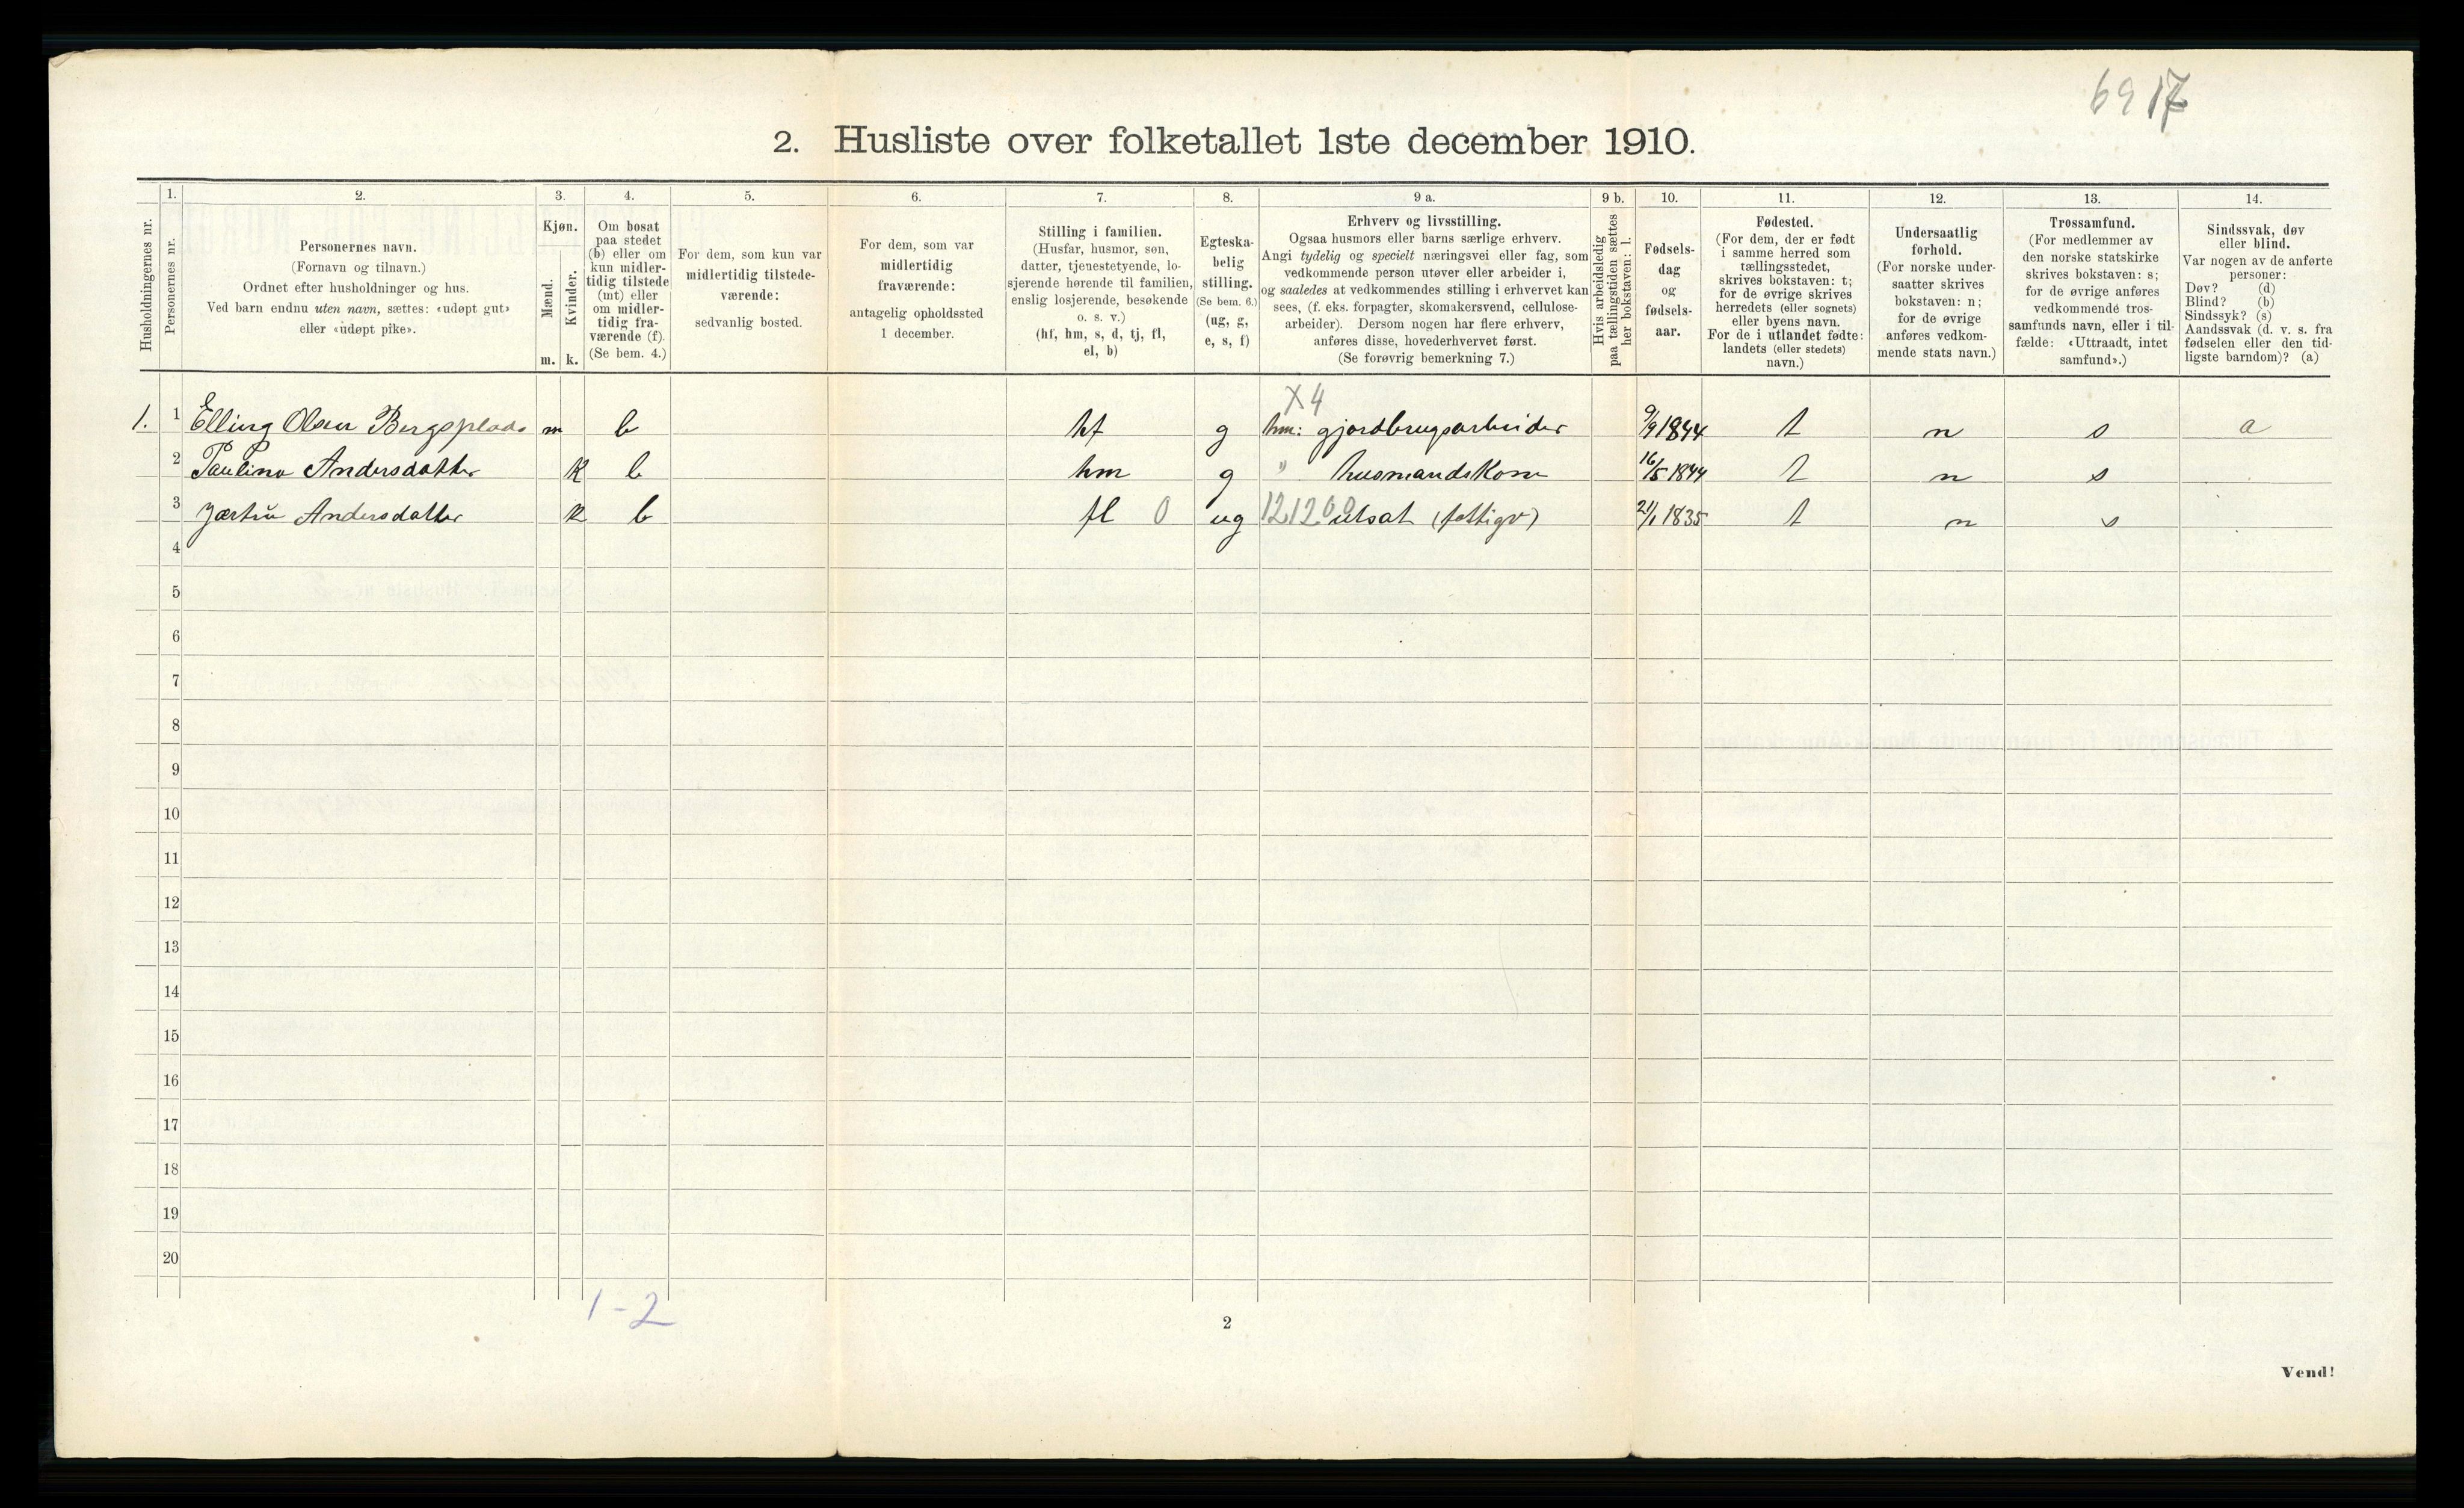 6917
2. Husliste over folketallet 1ste december 1910.
Husholdningernes nr.
1.
Personernes nr.
2.
Personernes navn.
(Fornavn og tilnavn.)
Ordnet efter husholdninger og hus.
Ved barn endnu uten navn, sættes: «udøpt gut»
eller «udøpt pike».
3.
Kjøn.
Mænd.
m.
Kvinder.
k.
4.
Om bosat
paa stedet
(b) eller om
kun midler-
tidig tilstede
(mt) eller
om midler-
tidig fra-
værende (f).
(Se bem. 4.)
5.
For dem, som kun var
midlertidig tilstede-
værende:
sedvanlig bosted.
6.
For dem, som var
midlertidig
fraværende:
antagelig opholdssted
1 december.
7.
Stilling i familien.
(Husfar, husmor, søn,
datter, tjenestetyende, lo-
sjerende hørende til familien,
enslig losjerende, besøkende
o. s. v.)
(hf, hm, s, d, tj, fl,
el, b)
8.
Egteska-
belig
stilling.
(Se bem. 6.)
(ug, g,
e, s, f)
9 a.
Erhverv og livsstilling.
Ogsaa husmors eller barns særlige erhverv.
Angi tydelig og specielt næringsvei eller fag, som
vedkommende person utøver eller arbeider i,
og saaledes at vedkommendes stilling i erhvervet kan
sees, (f. eks. forpagter, skomakersvend, cellulose-
arbeider). Dersom nogen har flere erhverv,
anføres disse, hovederhvervet først.
(Se forøvrig bemerkning 7.)
9 b.
Hvis arbeidsledig
paa tællingstiden sættes
her bokstaven: l.
10.
Fødsels-
dag
og
fødsels-
aar.
11.
Fødested.
(For dem, der er født
i samme herred som
tællingsstedet,
skrives bokstaven: t;
for de øvrige skrives
herredets (eller sognets)
eller byens navn.
For de i utlandet fødte:
landets (eller stedets)
navn.)
12.
Undersaatlig
forhold.
(For norske under-
saatter skrives
bokstaven: n;
for de øvrige
anføres vedkom-
mende stats navn.)
13.
Trossamfund.
(For medlemmer av
den norske statskirke
skrives bokstaven: s;
for de øvrige anføres
vedkommende tros-
samfunds navn, eller i til-
fælde: «Uttraadt, intet
samfund».)
14.
Sindssvak, døv
eller blind.
Var nogen av de anførte
personer:
Døv? (d)
Blind? (b)
Sindssyk? (s)
Aandssvak (d. v. s. fra
fødselen eller den tid-
ligste barndom)? (a)
X4
1. 1 Elling Olsen Bergsplads m b hf g hm: gjordbrugsarbeider 9/9 1844 t n s a
2 Paulina Andersdatter k b hm g " husmandskone 16/5 1844 t n s
3 Andersdatter k b fl 0 ug 121200 utsat (fattigv) 21/1 1835 t n s
4
5
6
7
8
9
10
11
12
13
14
15
16
17
18
19
20
1-2
2
Vend!